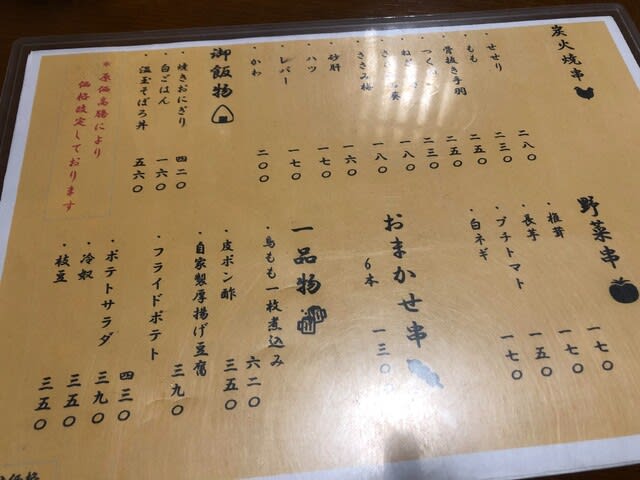 炭火焼串
・せせり 二八〇
・もも 二三〇
・骨抜き手羽 二五〇
・つく 二五〇
・ねぎ 二三〇
・さ 一八〇
・ささみ梅 一八〇
・砂肝 一六〇
・ハツ 一七〇
・レバー 一七〇
・かわ 二〇〇
御飯物
・焼きおにぎり 四二〇
・白ごはん 一六〇
・温玉そぼろ丼 五六〇
＊原価高騰により
価格改定しております
野菜串
・椎茸 一七〇
・長芋 一七〇
・プチトマト 一五〇
・白ネギ 一七〇
おまかせ串
6本 一三〇
一品物
・鳥もも一枚煮込み 六二〇
・皮ポン酢 三五〇
・自家製厚揚げ豆腐 三九〇
・フライドポテト 四三〇
・ポテトサラダ 三九〇
・冷奴 三五〇
・枝豆 三五〇
価格